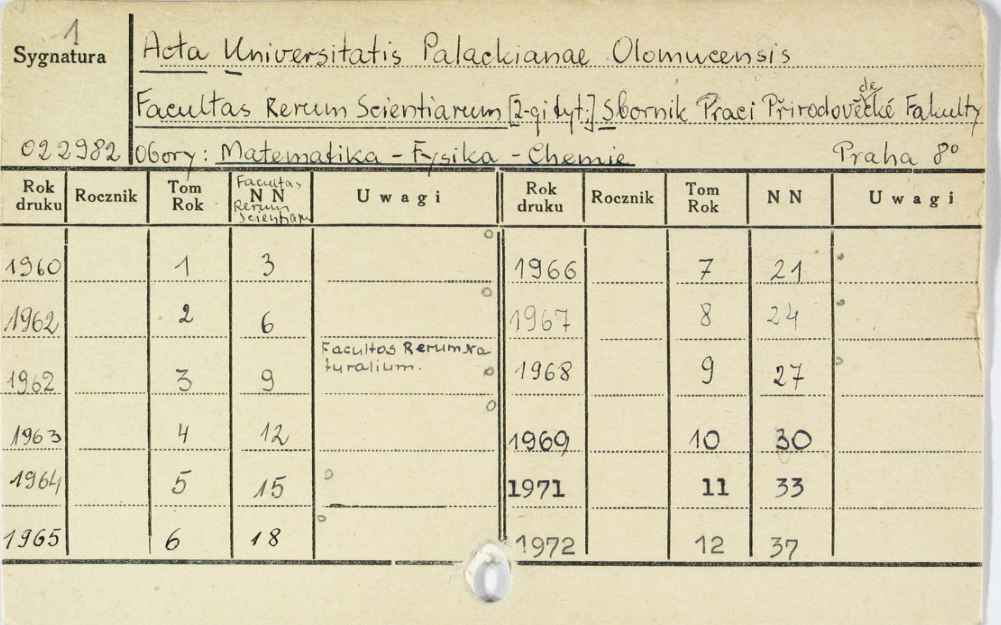 1
Sygnatura
Acta Universitatis Palackianae Olomucensis
Facultas Rerum Scientiarum [2-gi tyt:] Sbornik Praci Přirodověděcké Fakulty
022982 Obory: Matematika - Fysika - Chemie Praha 8°
Rok druku Rocznik Tom Rok Facultas NN Rerum Scientiarum Uwagi Rok druku Rocznik Tom Rok NN Uwagi
1960 1 3 1966 7 21
1962 2 6 1967 8 24
Facultas Rerum Na
turalium.
1962 3 9 1968 9 27
1963 4 12 1969 10 30
1964 5 15 1971 11 33
1965 6 18 1972 12 37